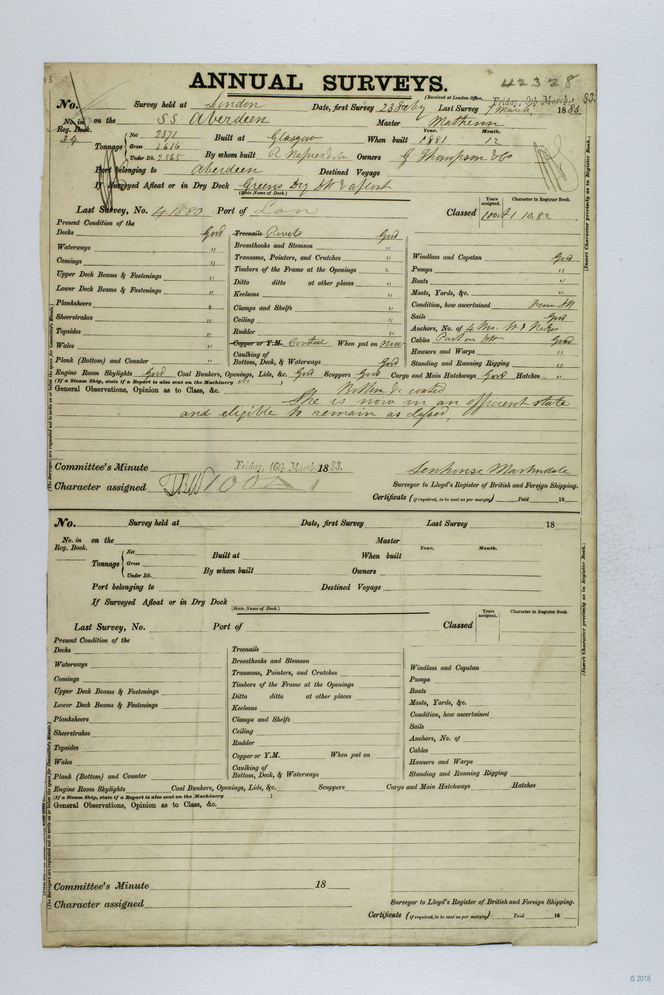 ANNUAL SURVEYS.
42328
(Received at London Office, Friday, 9th March, 83.
No. Survey held at London Date, first Survey 23 Feby Last Survey 7 March 1883
No. in Reg. Book. 39 on the SS Aberdeen Master
Tonnage Net 2371 Gross 3616 Under Dk. 2565
Built at Glasgow When built Year. 1881 Month. 12
By whom built A Napier & Son Owners G Thompson & Co
Port belonging to Aberdeen Destined Voyage
If Surveyed Afloat or in Dry Dock Greens Dry Dk & afloat
(State Name of Dock.)
Last Survey, No. 41880 Port of Lon Classed Years assigned. 100A1 Character in Register Book. 10,82
(Insert Character precisely as in Register Book.)
Present Condition of the
Decks Good
Waterways "
Comings "
Upper Deck Beams & Fastenings "
Lower Deck Beams & Fastenings "
Planksheers "
Sheerstrakes "
Topsides "
Wales "
Plank (Bottom) and Counter "
Treenails Rivets Good
Breasthooks and Stemson "
Transoms, Pointers, and Crutches "
Timbers of the Frame at the Openings "
Ditto ditto at other places "
Keelsons "
Clamps and Shelfs "
Ceiling "
Rudder "
Copper or Y.M. Coated When put on now
Caulking of Bottom, Deck, & Waterways Good
Windlass and Capstan Good
Pumps "
Boats "
Masts, Yards, &c. "
Condition, how ascertained From Dk
Sails Good
Anchors, No. of 4
Cables Good
Hawsers and Warps "
Standing and Running Rigging "
Engine Room Skylights Good Coal Bunkers, Openings, Lids, &c. Good Scuppers Good Cargo and Main Hatchways Good Hatches "
(If a Steam Ship, state if a Report is also sent on the Machinery No )
General Observations, Opinion as to Class, &c. Bottom &c coated
She is now in an efficient state
and eligible to remain as classed.
Committee's Minute Friday, 16th March 1883.
Character assigned 100A1
Senhouse Martindale
Surveyor to Lloyd's Register of British and Foreign Shipping.
Certificate (if required, to be sent as per margin) Paid 18
No. Survey held at Date, first Survey Last Survey 18
No. in Reg. Book. on the Master
Tonnage Net Gross Under Dk.
Built at When built Year. Month.
By whom built Owners
Port belonging to Destined Voyage
If Surveyed Afloat or in Dry Dock
(State Name of Dock.)
Last Survey, No. Port of Classed Years assigned. Character in Register Book.
(Insert Character precisely as in Register Book.)
Present Condition of the
Decks
Waterways
Comings
Upper Deck Beams & Fastenings
Lower Deck Beams & Fastenings
Planksheers
Sheerstrakes
Topsides
Wales
Plank (Bottom) and Counter
Treenails
Breasthooks and Stemson
Transoms, Pointers, and Crutches
Timbers of the Frame at the Openings
Ditto ditto at other places
Keelsons
Clamps and Shelfs
Ceiling
Rudder
Copper or Y.M. When put on
Caulking of Bottom, Deck, & Waterways
Windlass and Capstan
Pumps
Boats
Masts, Yards, &c.
Condition, how ascertained
Sails
Anchors, No. of
Cables
Hawsers and Warps
Standing and Running Rigging
Engine Room Skylights Coal Bunkers, Openings, Lids, &c. Scuppers Cargo and Main Hatchways Hatches
(If a Steam Ship, state if a Report is also sent on the Machinery )
General Observations, Opinion as to Class, &c.
Committee's Minute 18
Character assigned
Surveyor to Lloyd's Register of British and Foreign Shipping.
Certificate (if required, to be sent as per margin) Paid 18
© 2018